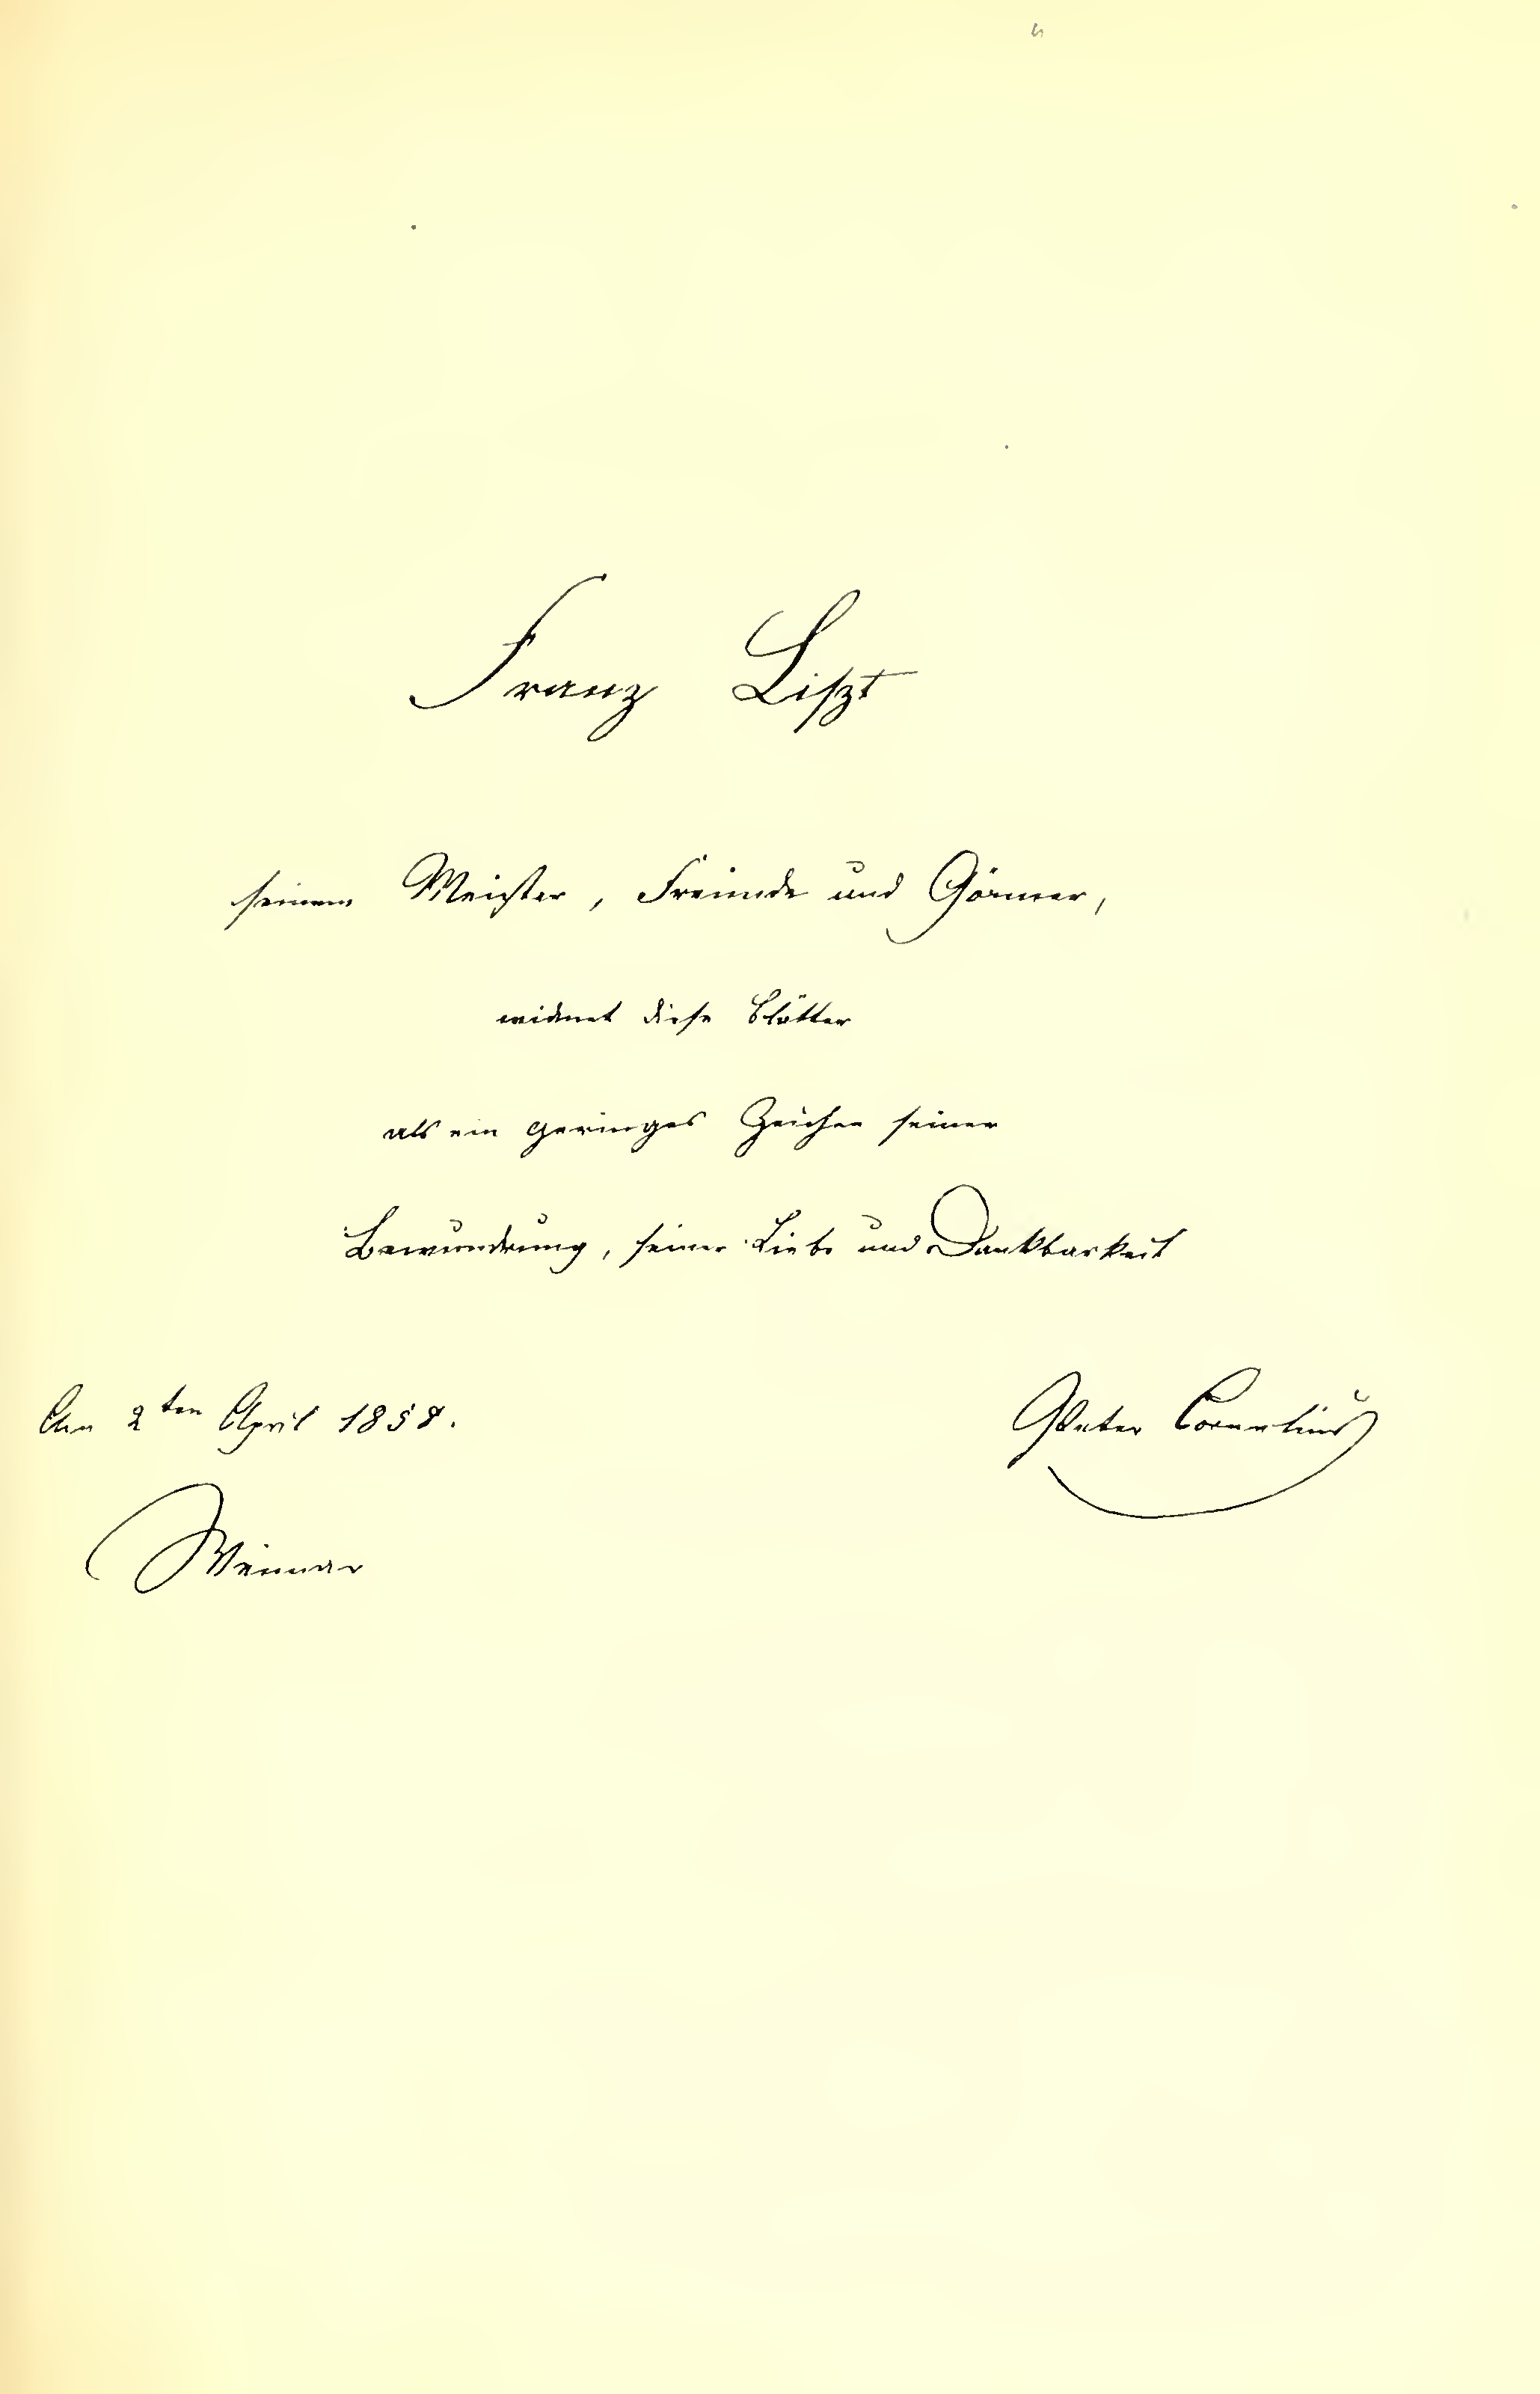 Franz Liszt
seinem Meister, Freunde und Gönner,
widmet diese Blätter
als ein geringes Zeichen seiner
Bewundrung, seiner Liebe und Dankbarkeit
Am 2ten April 1858.
Peter Cornelius
Weimar